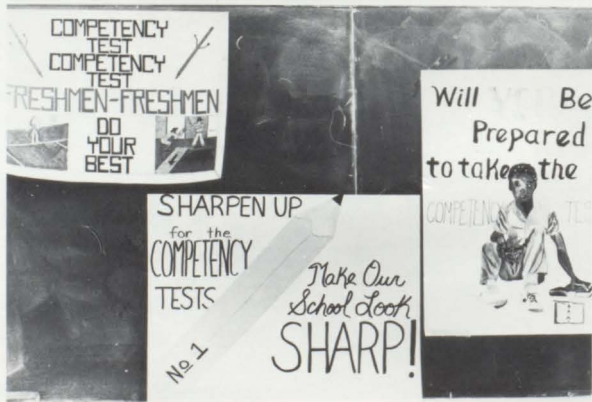 COMPETENCY
TEST
COMPETENCY
TEST
FRESHMEN-FRESHMEN
DO
YOUR
BEST
SHARPEN UP
for the
COMPETENCY
TESTS
No 1
Make Our
School Look
SHARP!
Will YOU Be
Prepared
to take the
COMPETENCY TES